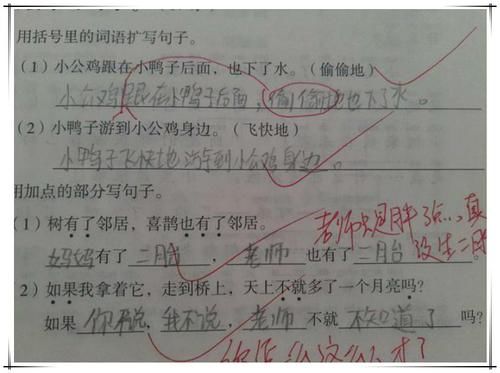 用括号里的词语扩写句子。
(1)小公鸡跟在小鸭子后面,也下了水。(偷偷地)
小公鸡跟在小鸭子后面,偷偷地也下了水。
(2)小鸭子游到小公鸡身边。(飞快地)
小鸭子飞快地游到小公鸡身边。
用加点的部分写句子。
(1)树有了邻居,喜鹊也有了邻居。
老师只是胖了点...真
妈妈有了二胎,老师也有了二胎。
没生二胎
2)如果我拿着它,走到桥上,天上不就多了一个月亮吗?
如果你不说,我不说,老师不就不知道了吗?